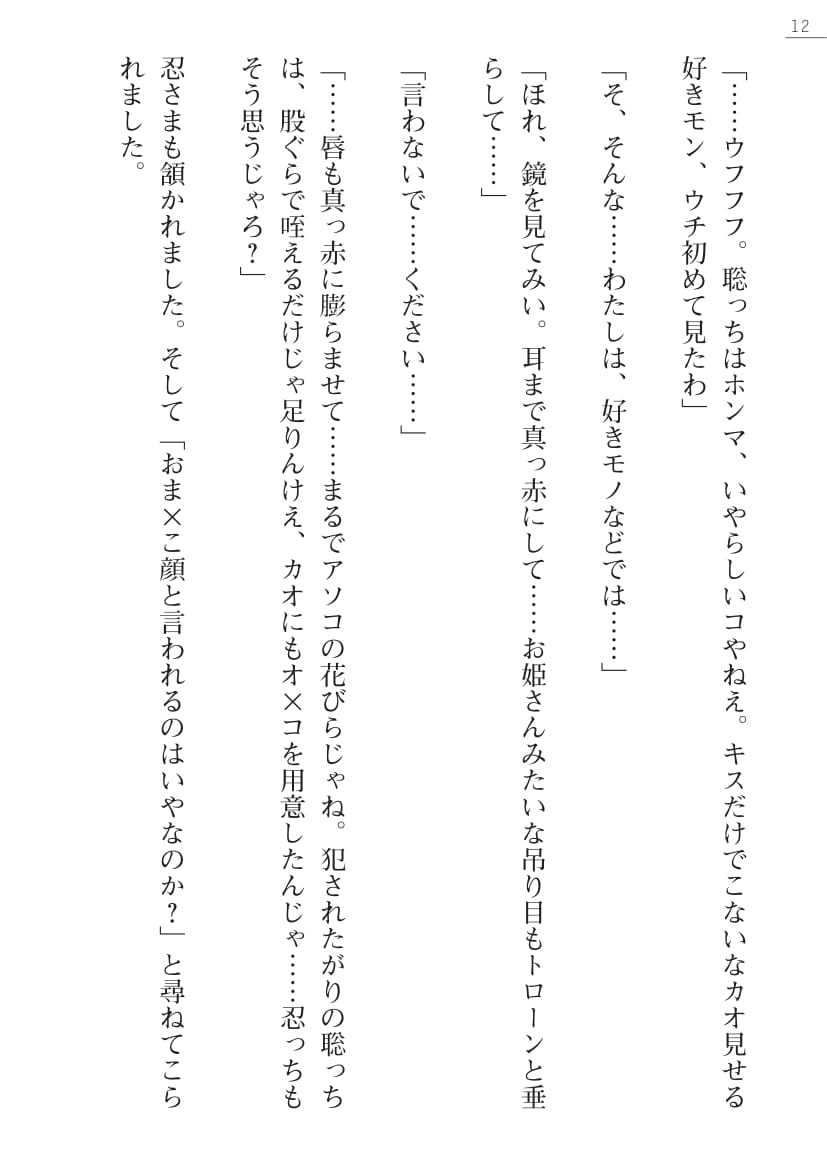 12
「……ウフフフ。聡っちはホンマ、いやらしいコやねえ。キスだけでこないなカオ見せる
好きモン、ウチ初めて見たわ」
「そ、そんな……わたしは、好きモノなどでは……」
「ほれ、鏡を見てみい。耳まで真っ赤にして……お姫さんみたいな吊り目もトローンと垂
らして……」
「言わないで……ください……」
「……唇も真っ赤に膨らませて……まるでアソコの花びらじゃね。犯されたがりの聡っち
は、股ぐらで咥えるだけじゃ足りんけえ、カオにもオ×コを用意したんじゃ……忍っちも
そう思うじゃろ？」
忍さまも頷かれました。そして「おま×こ顔と言われるのはいやなのか？」と尋ねてこら
れました。